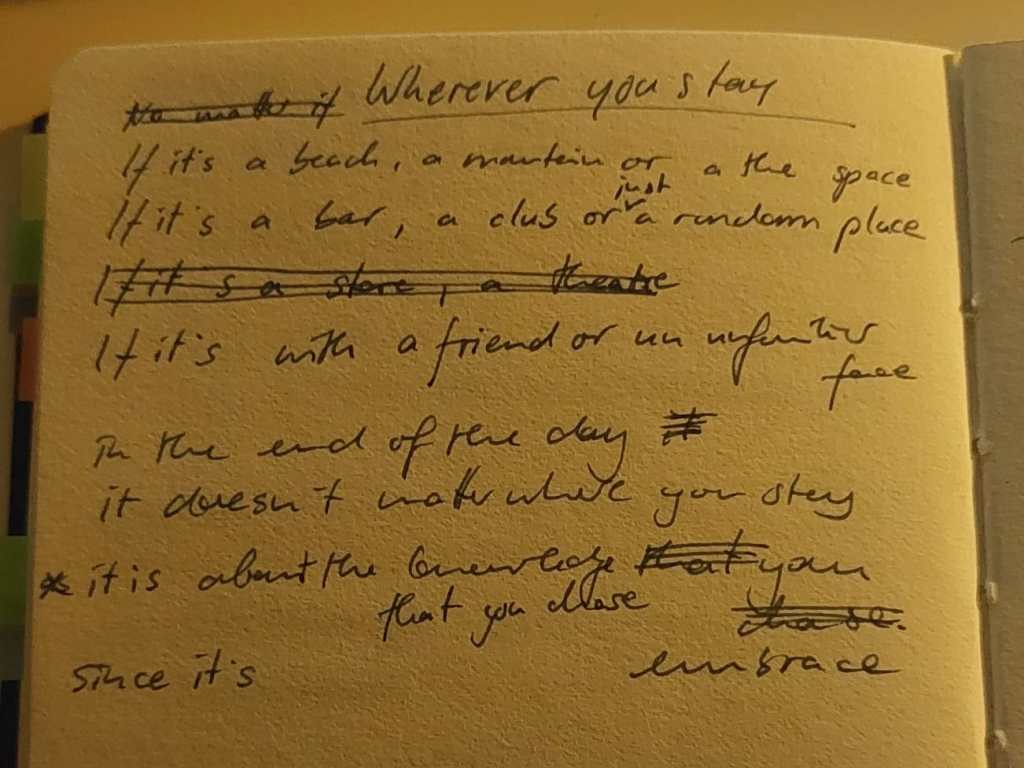 No matter if Wherever you stay
If it's a beach, a mountain or a the space
If it's a bar, a club or just a random place
If it's a store, a theatre
If it's with a friend or an unfamiliar
face
in the end of the day it
it doesn't matter where you stay
* it is about the knowledge that you
that you chase chase.
since it's embrace